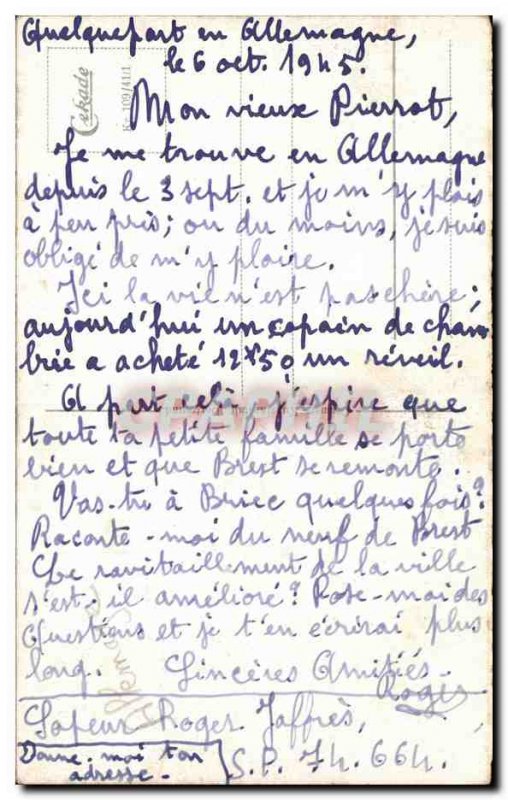 Quelquepart en Allemagne,
le 6 oct. 1945.
Cekade
No 109/41:1
Mon vieux Pierrot,
Je me trouve en Allemagne
depuis le 3 sept. et je m'y plais
à peu près; ou du moins, je suis
obligé de m'y plaire.
Ici la vie n'est pas chère;
aujourd'hui un copain de cham
brée a acheté 12x50 un réveil.
A part celà, j'espire que
toute ta petite famille se porte
bien et que Brest se remonte.
Vas-tu à Briec quelques fois?
Raconte-moi du neuf de Brest
Le ravitaillement de la ville
s'est-il amélioré? Pose-moi des
Questions et je t'en écrirai plus
long. Sincères Amitiés-
Roger
Sapeur Roger Jaffrès,
Donne-moi ton
adresse-
S.P. 74.664.